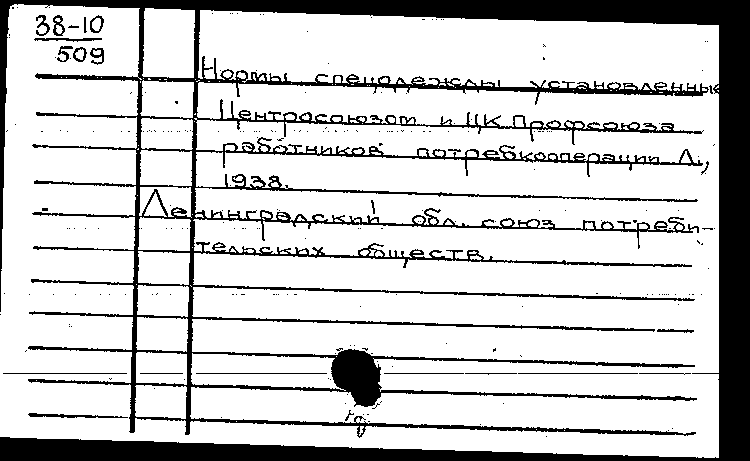 38-10
509
Нормы спецодежды установленные
Центросоюзом и ЦК Профсоюза
работников потребкооперации Л.,
1938.
Ленинградский обл. союз потреби-
тельских обществ.